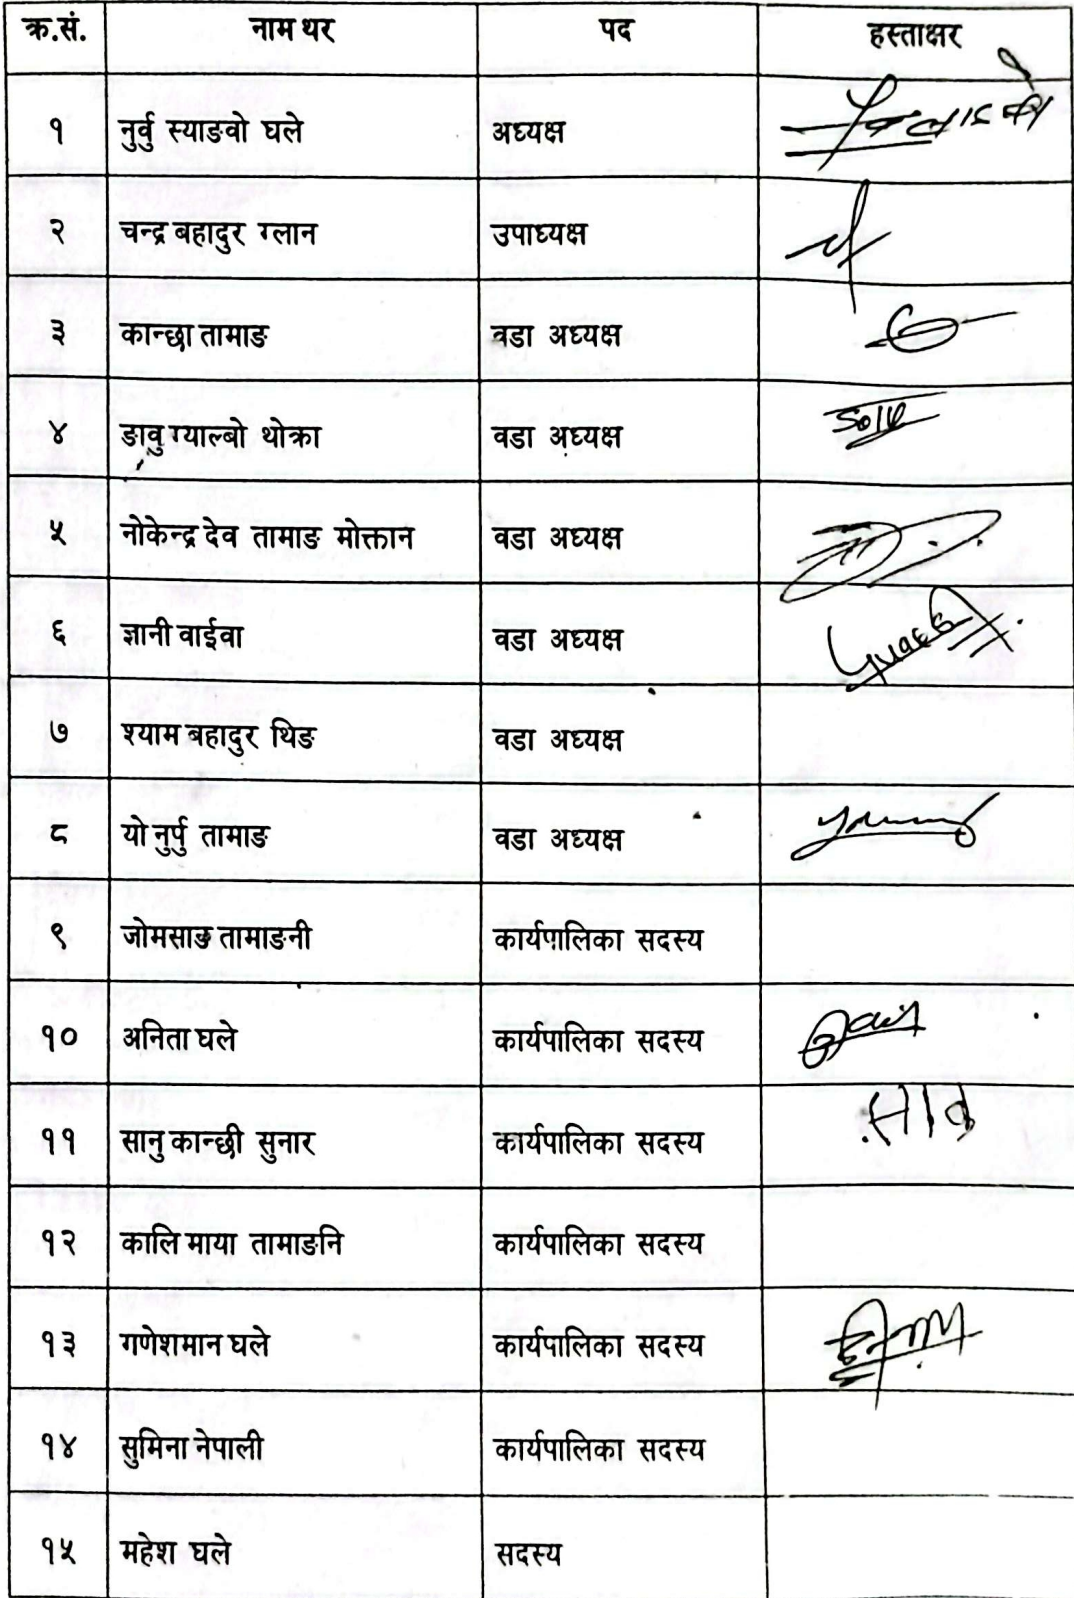 क्र.सं. नाम थर पद हस्ताक्षर
१ नुर्वु स्याङवो घले अध्यक्ष
२ चन्द्र बहादुर ग्लान उपाध्यक्ष
३ कान्छा तामाङ वडा अध्यक्ष
४ ङावु ग्याल्बो थोक्रा वडा अध्यक्ष
५ नोकेन्द्र देव तामाङ मोक्तान वडा अध्यक्ष
६ ज्ञानी वाईवा वडा अध्यक्ष
७ श्याम बहादुर थिङ वडा अध्यक्ष
८ यो नुर्पु तामाङ वडा अध्यक्ष
९ जोमसाङ तामाङनी कार्यपालिका सदस्य
१० अनिता घले कार्यपालिका सदस्य
११ सानु कान्छी सुनार कार्यपालिका सदस्य
१२ कालि माया तामाङनि कार्यपालिका सदस्य
१३ गणेशमान घले कार्यपालिका सदस्य
१४ सुमिना नेपाली कार्यपालिका सदस्य
१५ महेश घले सदस्य